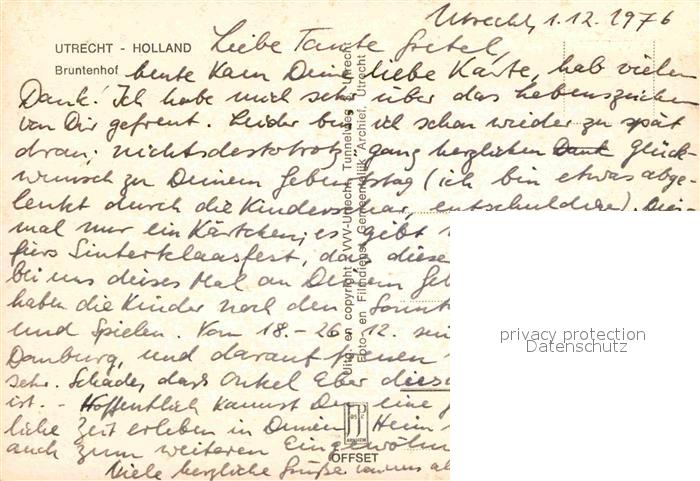 Utrecht, 1.12.1976
UTRECHT - HOLLAND
Bruntenhof
Liebe Tante Gretel,
heute kam Deine liebe Karte, hab vielen
Dank! Ich habe mich sehr über das Lebenszeichen
von Dir gefreut. Leider bin ich schon wieder zu spät
dran; nichtsdestotrotz ganz herzlichen Dank Glück-
wunsch zu Deinem Geburtstag (ich bin etwas abge-
lenkt durch die Kinderschar, entschuldige). Dies-
mal nur ein Kärtchen; es gibt
fürs Sinterklaasfest, das diese
bei uns dieses Mal an Deinem Geb
haben die Kinder noch den Sonnt
und Spielen. Vom 18.-26.12. sin
und darauf freuen
sehr. Schade, dass Onkel Eber diese
ist. - Hoffentlich kannst Du eine
liche Zeit erleben in Deinem Heim
auch zum weiteren Eingewöhn
Viele herzliche Grüße von uns al
Uitg. en copyright: VVV-Utrecht, Tunnelweg, Utrecht
Foto- en Filmdienst Gemeentelijk Archief, Utrecht
OFFSET
privacy protection
Datenschutz